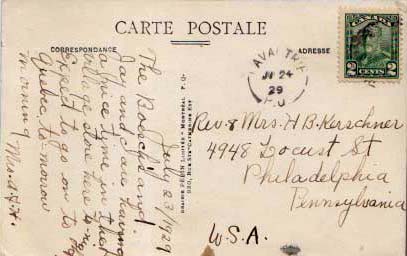 CARTE POSTALE
CORRESPONDANCE
ADRESSE
CANADA
2 CENTS 2
LAVALTRIE
24
29
P.Q
July 23/1929
The and
Jay and I are having
a nice time in
village store here
Expect to go on to
Quebec to morrow
morning
Mrs A.H.
MONTRÉAL, P.Q.
Rev & Mrs. H B. Kerschner
4948 Locust St
Philadelphia
Pennsylvania
U.S.A.